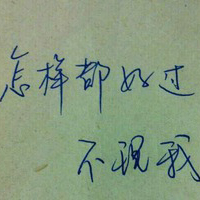 怎样都好过
不现我